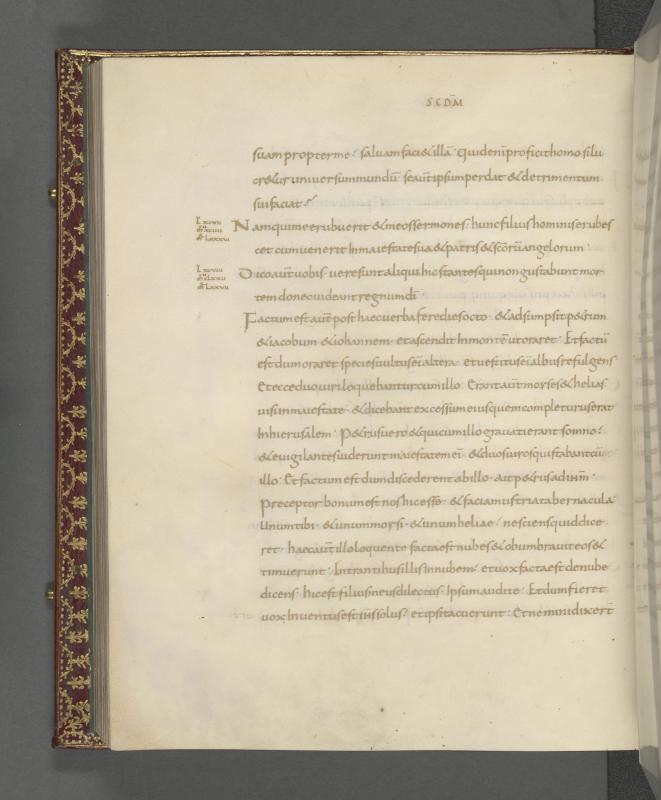 SCDM̄
suam propter me · saluam faciet illā · Quid enī proficit homo si lu
cretur uniuersum mundū se aut̄ ipsum perdat & detrimentum
sui faciat ·
Nam qui me erubuerit & meos sermones · hunc filius hominis erubes
cet cum uenerit In maiestate sua & patris & scōrū angelorum ·
Dico aut̄ uobis · uere sunt aliqui hic stantes qui non gustabunt mor
tem donec uideant regnum dī
Factum est autē post haec uerba fere dies octo · & adsumpsit petrum
& iacobum & iohannem · et ascendit In montē ut oraret · Et factū
est dum oraret species uultus eī altera · et uestitus eī albus refulgens
Et ecce duo uiri loquebantur cum illo · Erant aut̄ morses & helias
uisi in maiestate · & dicebant excessum eius quem completurus erat
In hierusalem · Petrus uero & qui cum illo grauati erant somno ·
& euigilantes uiderunt maiestatem eī · & duos uiros qui stabant cū
illo · Et factum est dum discederent ab illo · ait petrus ad ihm̄ ·
Preceptor bonum est nos hic esse · & faciamus tria tabernacula
Unum tibi · & unum morsi · & unum heliae · nesciens quid dice
ret · haec aut̄ illo loquente facta est nubes & obumbrauit eos &
timuerunt · Intrantibus illis In nubem · et uox facta est de nube
dicens · hic est filius meus dilectus · Ipsum audite · Et dum fieret
uox Inuentus est ihs̄ solus · et ipsi tacuerunt · Et nemini dixer̄t